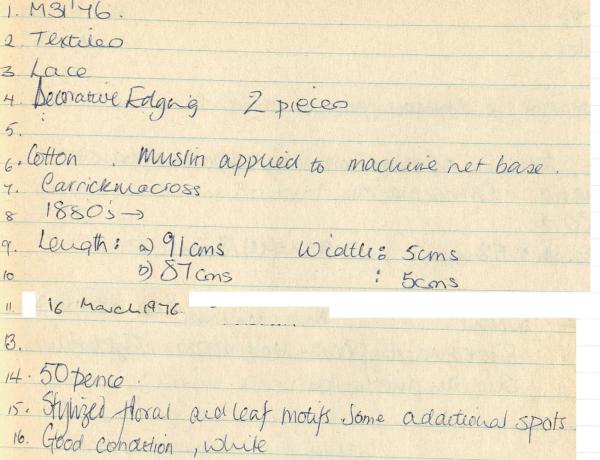 1. M31'76.
2 Textiles
3 Lace
4. Decorative Edging 2 pieces
5.
6. Cotton Muslin applied to machine net base.
7. Carrickmacross
8 1880's →
9. Length: a) 91 cms Width: 5cms
10 b) 87 cms : 5cms
11. 16 March 1976
13.
14. 50 pence.
15. Stylized floral and leaf motifs some additional spots
16. Good condition, white